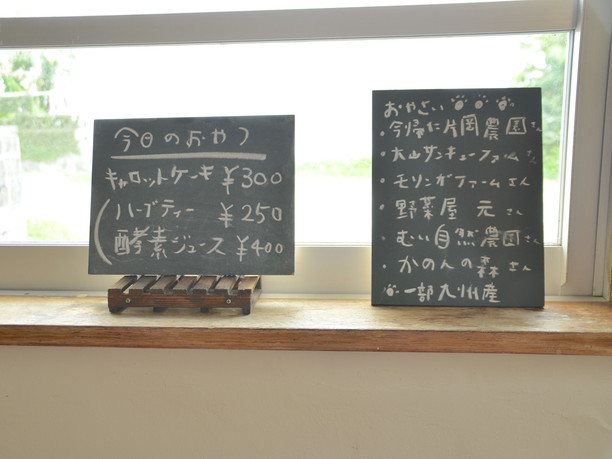 今日のおやつ
キャロットケーキ ¥300
ハーブティー ¥250
酵素ジュース ¥400
おやさい
・今帰仁片岡農園さん
・大山サンキューファームさん
・モリンガファームさん
・野菜屋 元さん
・むい自然農園さん
・かのんの森さん
・一部九州産